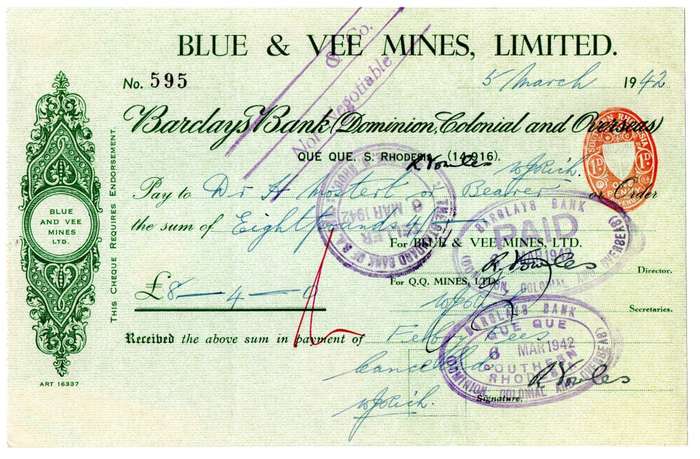 BLUE & VEE MINES, LIMITED.
& Co.
Not Negotiable
No. 595
5 March 1942
Barclays Bank (Dominion, Colonial and Overseas)
QUE QUE, S. RHODESIA, (14,916).
R Vowles
1D 1D
Pay to Dr H Mostert or Bearer or Order
the sum of Eight pounds 4/-
For BLUE & VEE MINES, LTD.
R Vowles
Director.
£8-4-0
For Q.Q. MINES, LTD.
Secretaries.
Received the above sum in payment of
Cancelled
R Vowles
Signature.
THIS CHEQUE REQUIRES ENDORSEMENT.
BLUE
AND VEE
MINES
LTD.
ART 16337
THE STANDARD BANK OF S.
6 MAR 1942
BARCLAYS BANK
PAID
1942
(DOMINION COLONIAL AND OVERSEAS)
BARCLAYS BANK
QUE QUE
6 MAR 1942
SOUTHERN
RHODESIA
(DOMINION COLONIAL AND OVERSEAS)